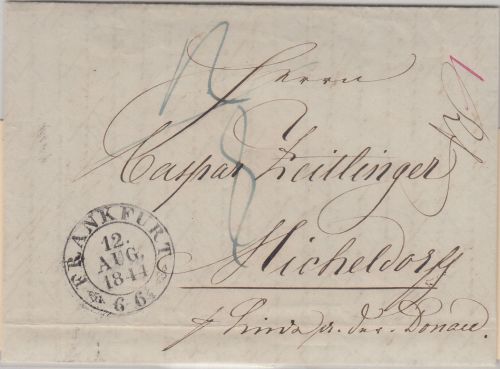 Herrn
Caspar Zeitlinger
Micheldorff
p. der Donau
FRANKFURT
12.
AUG.
1844
6-6½